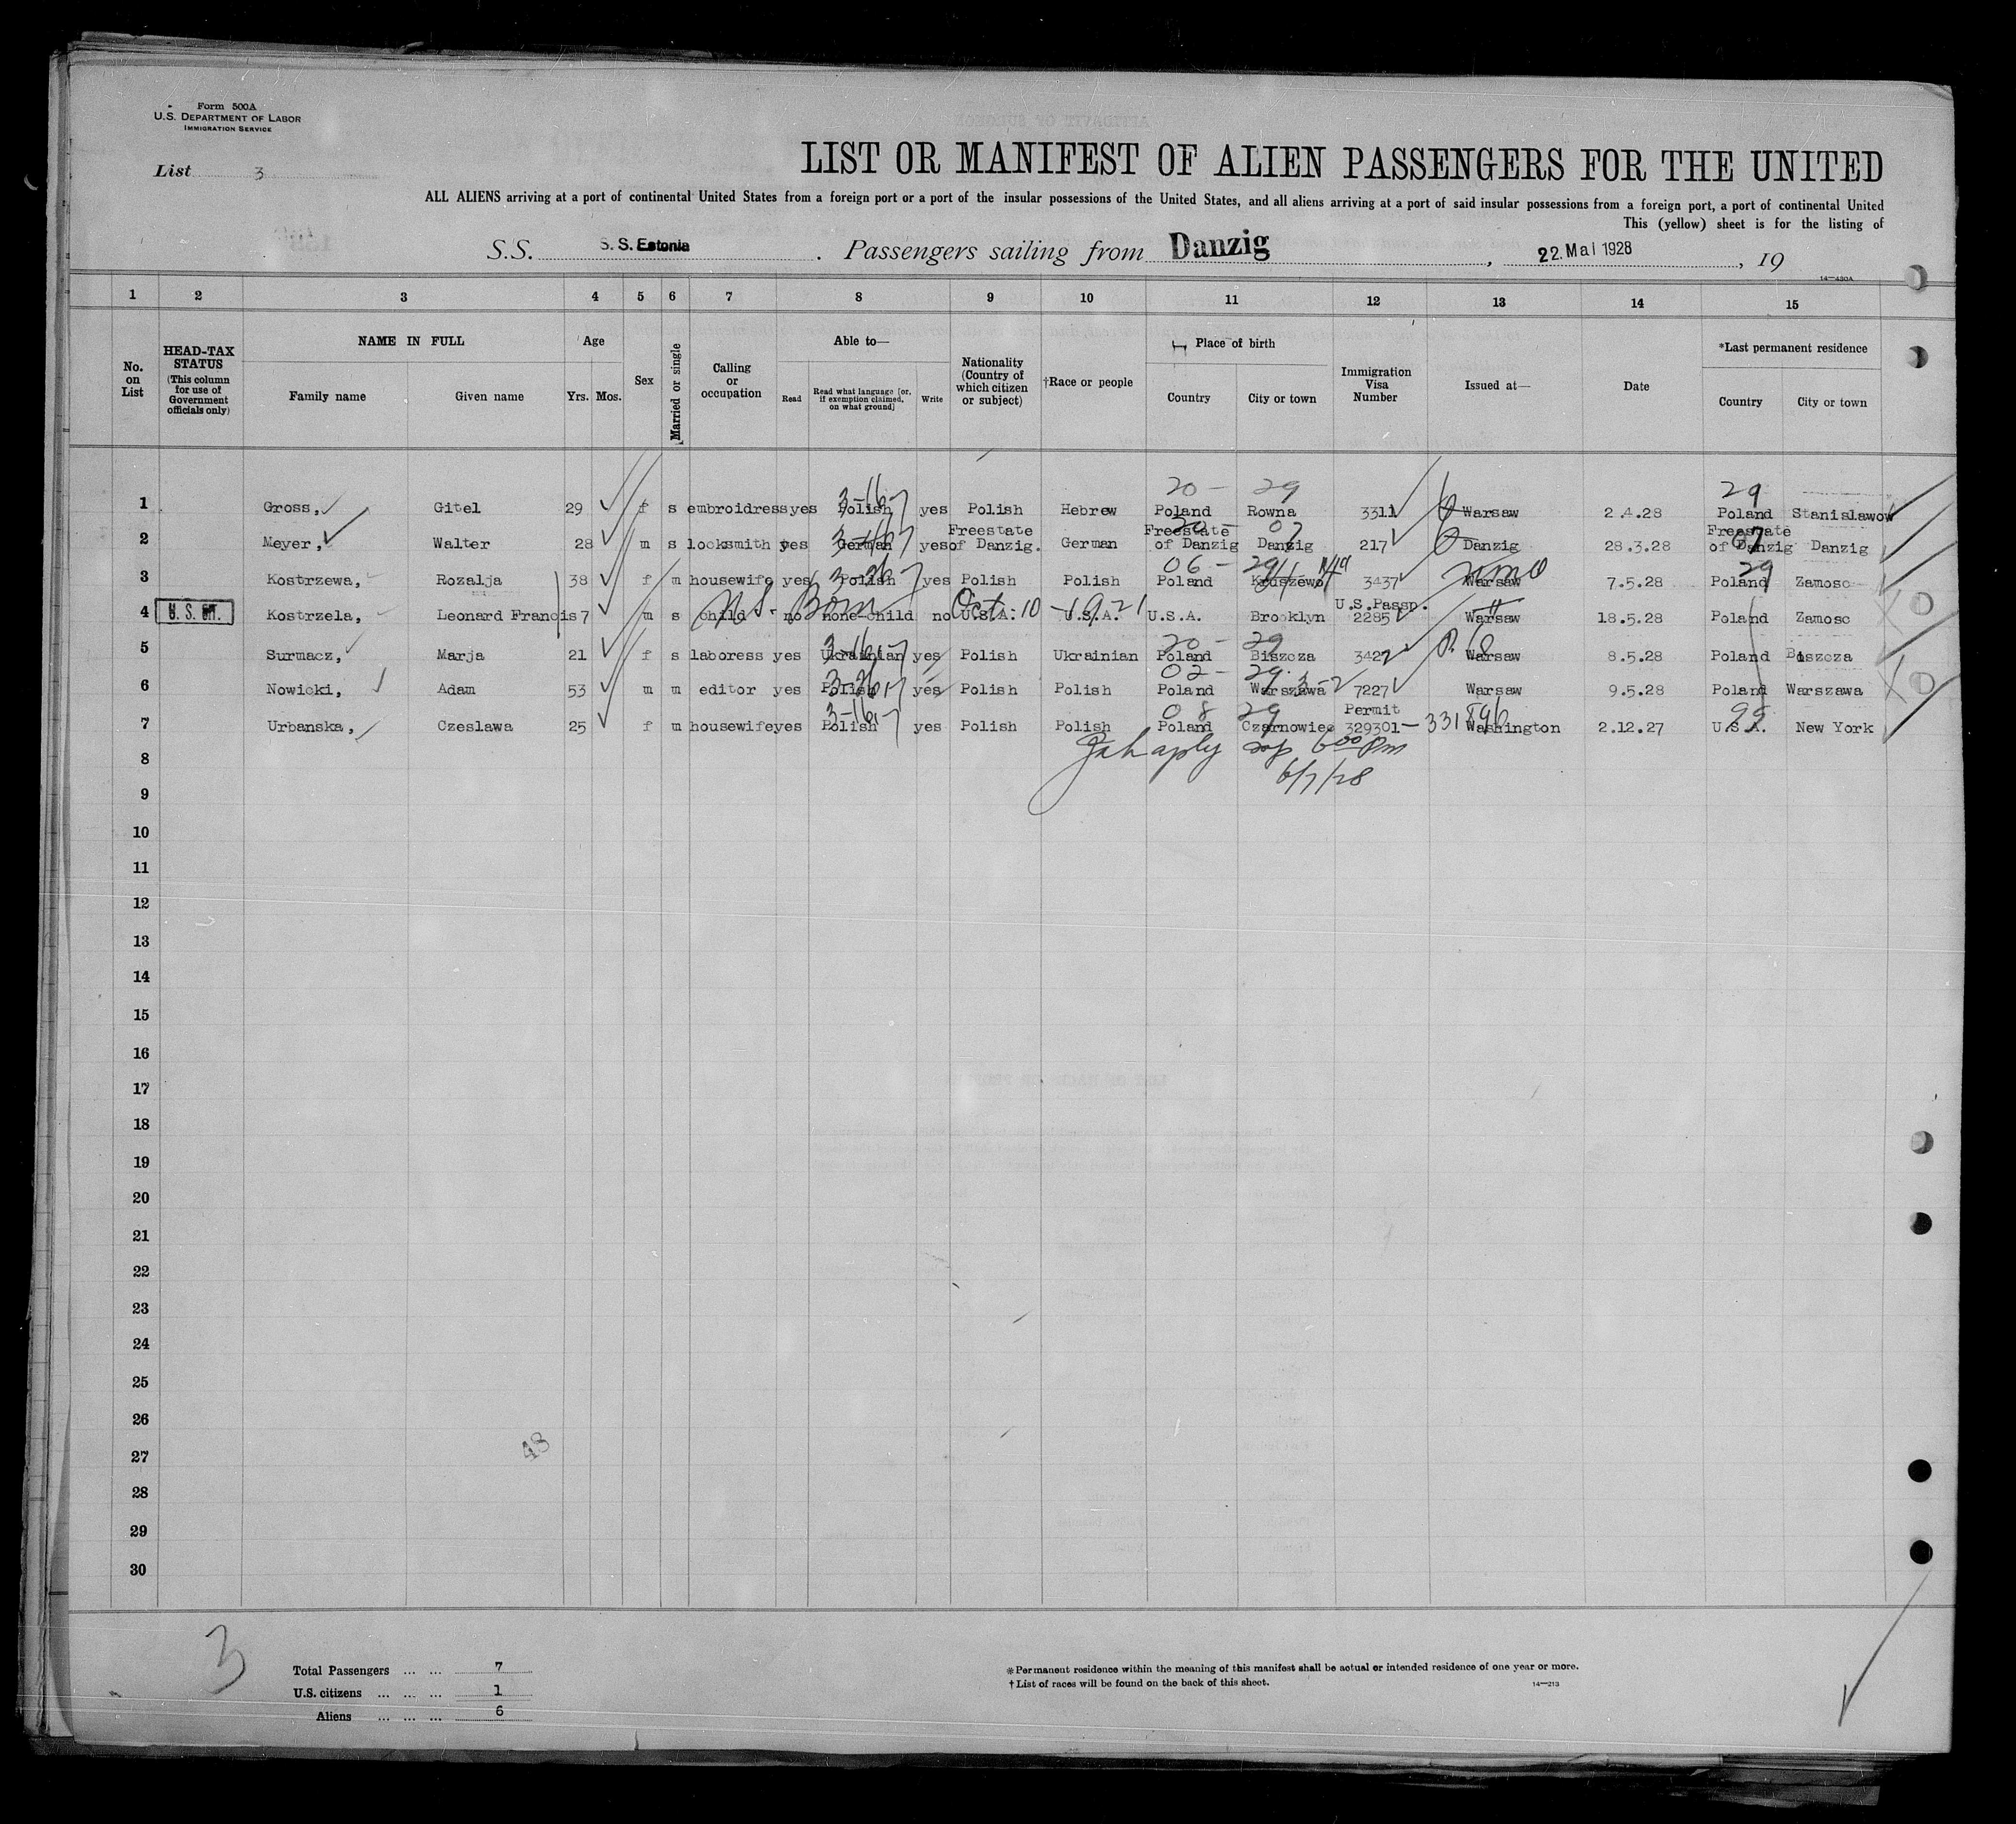 Form 500A
U.S. DEPARTMENT OF LABOR
IMMIGRATION SERVICE
List 3
LIST OR MANIFEST OF ALIEN PASSENGERS FOR THE UNITED
ALL ALIENS arriving at a port of continental United States from a foreign port or a port of the insular possessions of the United States, and all aliens arriving at a port of said insular possessions from a foreign port, a port of continental United
This (yellow) sheet is for the listing of
S.S. S. S. Estonia . Passengers sailing from Danzig , 22. Mai 1928 , 19
14—430A
1 2 3 4 5 6 7 8 9 10 11 12 13 14 15
No. on List
HEAD-TAX STATUS (This column for use of Government officials only)
NAME IN FULL
Family name Given name
Age
Yrs. Mos.
Sex
Married or single
Calling or occupation
Able to—
Read
Read what language [or, if exemption claimed, on what ground]
Write
Nationality (Country of which citizen or subject)
†Race or people
Place of birth
Country City or town
Immigration Visa Number
Issued at—
Date
*Last permanent residence
Country City or town
20 - 29 29
1 Gross, Gitel 29 f s embroidress yes Polish 3-16- yes Polish Hebrew Poland Rowna 3311 Warsaw 2.4.28 Poland Stanislawow
2 Meyer, Walter 28 m s locksmith yes German yes Freestate of Danzig. German Freestate of Danzig Danzig 217 Danzig 28.3.28 Freestate of Danzig Danzig
20 - 07 07
06 - 29 29
3 Kostrzewa, Rozalja 38 f m housewife yes Polish yes Polish Polish Poland Kruszewo 3437 Warsaw 7.5.28 Poland Zamosc
4 Kostrzela, Leonard Francis 7 m s child no none-child no U.S.A. U.S.A. U.S.A. Brooklyn U.S.Passp. 2285 Warsaw 18.5.28 Poland Zamosc
Born Oct. 10 - 1921
20 - 29
5 Surmacz, Marja 21 f s laboress yes Ukrainian yes Polish Ukrainian Poland Biszcza 3422 Warsaw 8.5.28 Poland Biszcza
02 - 29
6 Nowicki, Adam 53 m m editor yes Polish yes Polish Polish Poland Warszawa 7227 Warsaw 9.5.28 Poland Warszawa
08 29 99
7 Urbanska, Czeslawa 25 f m housewife yes Polish 3-16- yes Polish Polish Poland Czarnowiec Permit 329301 - 331896 Washington 2.12.27 U.S.A. New York
8
6/7/28
9
10
11
12
13
14
15
16
17
18
19
20
21
22
23
24
25
26
48
27
28
29
30
3
Total Passengers ... ... 7
U.S. citizens ... ... ... 1
Aliens ... ... ... 6
*Permanent residence within the meaning of this manifest shall be actual or intended residence of one year or more.
†List of races will be found on the back of this sheet.
14—213